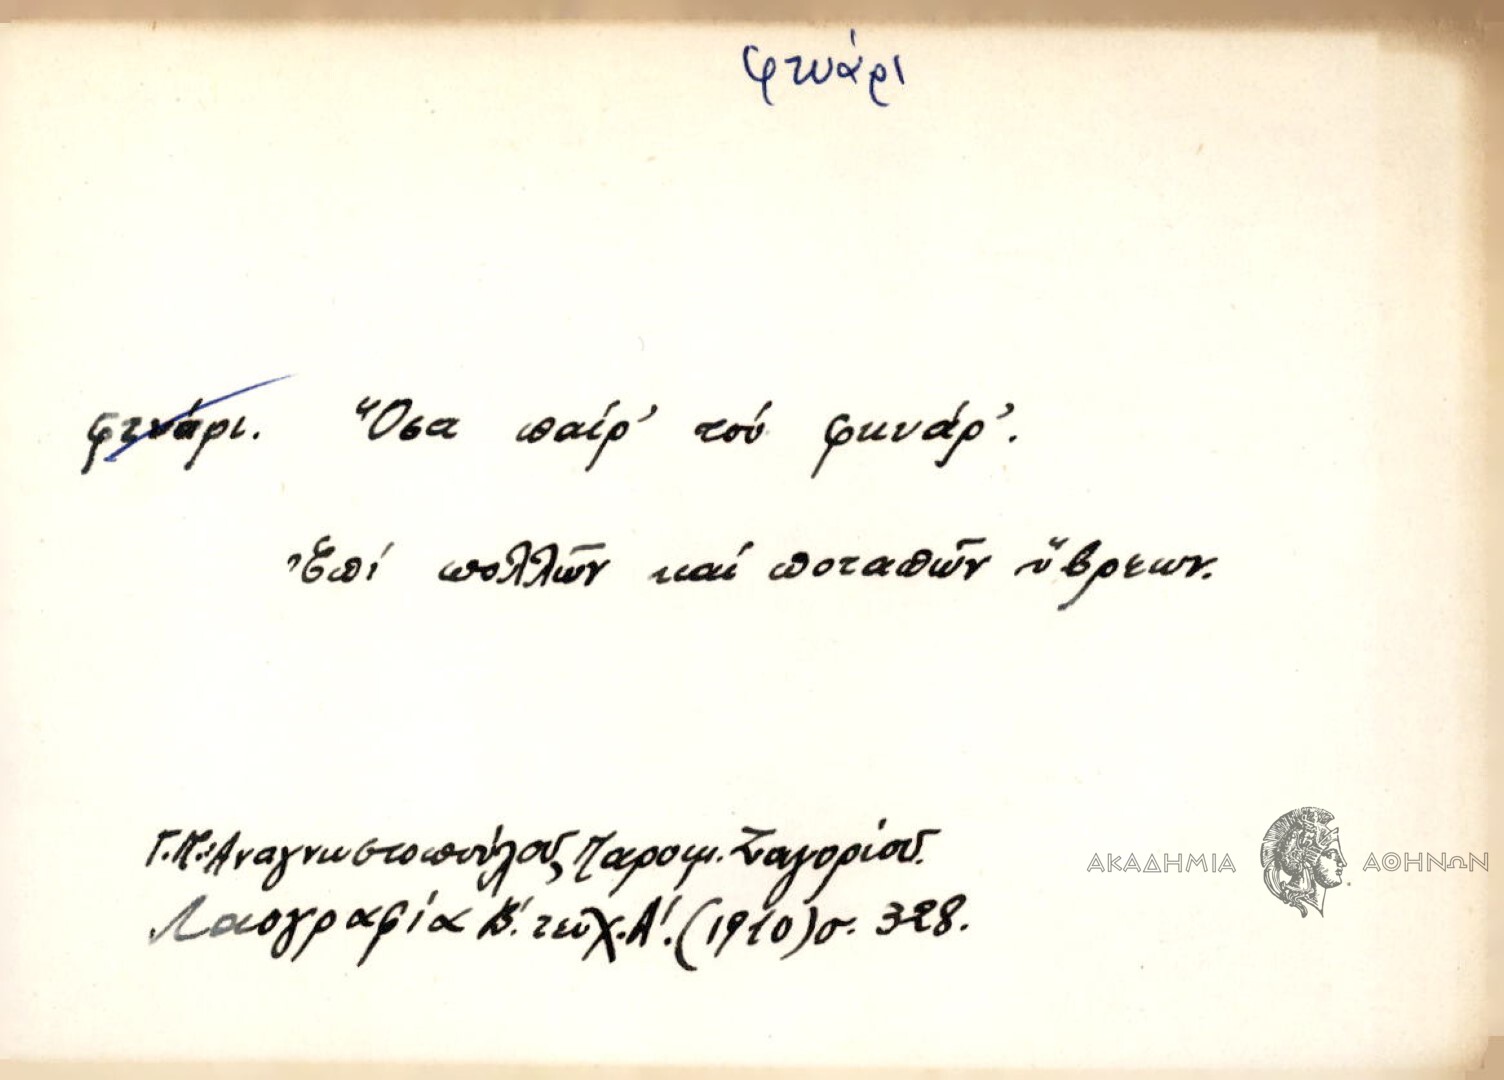 φτυάρι
φτυάρι. Ὅσα παίρ' τοὺ φκυάρ'.
Ἐπὶ πολλῶν καὶ ποταπῶν ὕβρεων.
Γ.Π. Ἀναγνωστοπούλου, Παροιμ. Ζαγορίου.
Λαογραφία Β'. τεῦχ. Α'. (1910) σ. 328.
ΑΚΑΔΗΜΙΑ ΑΘΗΝΩΝ